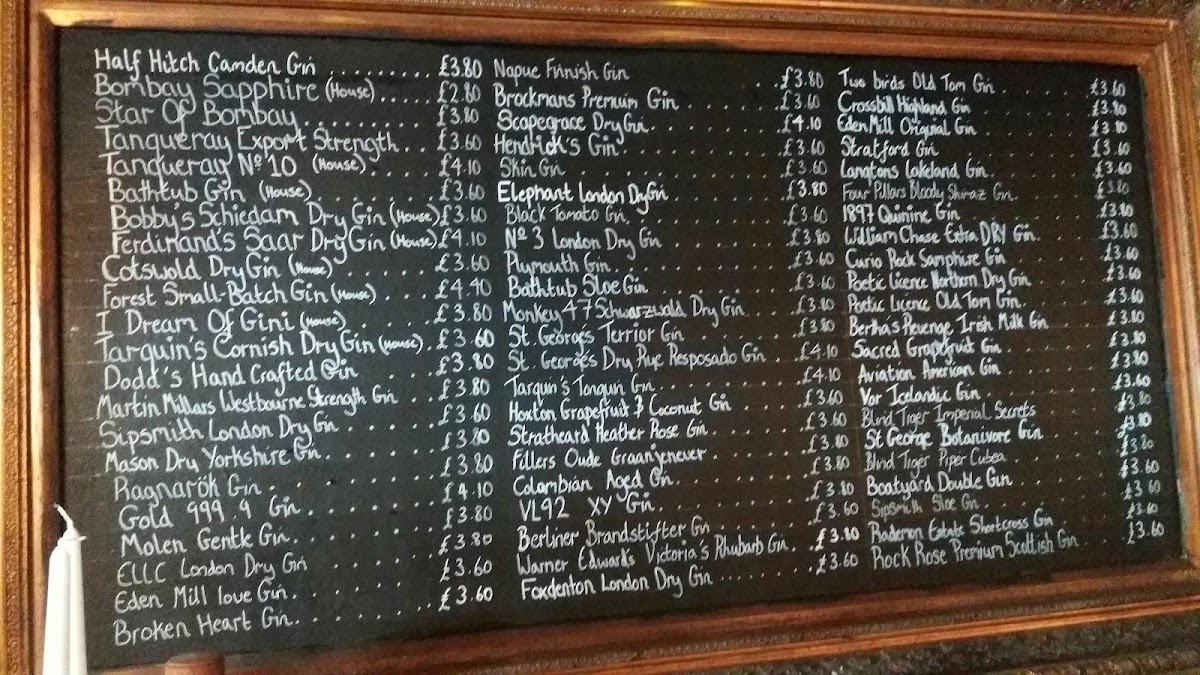 Half Hitch Camden Gin ......... £3.80
Bombay Sapphire (House) ..... £2.80
Star Of Bombay ......... £3.80
Tanqueray Export Strength .. £3.60
Tanqueray Nº10 (House) .... £4.10
Bathtub Gin (House) ....... £3.60
Bobby's Schiedam Dry Gin (House) £3.60
Ferdinand's Saar Dry Gin (House) £4.10
Cotswold Dry Gin (House) ...... £3.60
Forest Small-Batch Gin (House) .... £4.40
I Dream Of Gini (House) ....... £3.80
Tarquin's Cornish Dry Gin (House) . £3.60
Dodd's Hand Crafted Gin ..... £3.80
Martin Millars Westbourne Strength Gin .. £3.80
Sipsmith London Dry Gin ...... £3.60
Mason Dry Yorkshire Gin ...... £3.80
Ragnarök Gin ......... £3.80
Gold 999.9 Gin ........ £4.10
Molen Gentle Gin ........ £3.80
ELLC London Dry Gin ....... £3.80
Eden Mill love Gin ........ £3.60
Broken Heart Gin ........ £3.60
Napue Finnish Gin ... £3.80
Brockmans Premium Gin ...... £3.60
Scapegrace Dry Gin ....... £4.10
Hendrick's Gin ........ £3.60
Skin Gin ........ £3.60
Elephant London Dry Gin ....... £3.80
Black Tomato Gin ........ £3.60
Nº 3 London Dry Gin ....... £3.80
Plymouth Gin ........ £3.60
Bathtub Sloe Gin ........ £3.60
Monkey 47 Schwarzwald Dry Gin .... £3.80
St. George's Terrior Gin ...... £3.80
St. George's Dry Rye Resposado Gin .. £4.10
Tarquin's Tonquin Gin ....... £4.10
Hoxton Grapefruit & Coconut Gin .... £3.60
Stratheard Heather Rose Gin ..... £3.60
Fillers Oude Graanjenever ...... £3.80
Colombian Aged Gin ....... £3.80
VL92 XY Gin ........ £3.80
Berliner Brandstifter Gin ...... £3.60
Warner Edward's Victoria's Rhubarb Gin .. £3.80
Foxdenton London Dry Gin ....... £3.60
Two birds Old Tom Gin ...... £3.60
Crossbill Highland Gin ...... £3.80
Eden Mill Original Gin ...... £3.80
Stratford Gin ........ £3.60
Langtons Lakeland Gin ...... £3.60
Four Pillars Bloody Shiraz Gin .... £3.80
1897 Quinine Gin ....... £3.80
William Chase Extra DRY Gin .... £3.60
Curio Rock Samphire Gin ..... £3.60
Poetic Licence Northern Dry Gin .... £3.60
Poetic Licence Old Tom Gin ..... £3.60
Bertha's Revenge Irish Milk Gin .... £3.80
Sacred Grapefruit Gin ...... £3.80
Aviation American Gin ...... £3.80
Vor Icelandic Gin ....... £3.60
Blind Tiger Imperial Secrets .... £3.80
St George Botanivore Gin .... £3.80
Blind Tiger Piper Cubea ..... £3.80
Boatyard Double Gin ..... £3.60
Sipsmith Sloe Gin ...... £3.60
Estate Shortcross Gin ... £3.60
Rock Rose Premium Scottish Gin ... £3.60